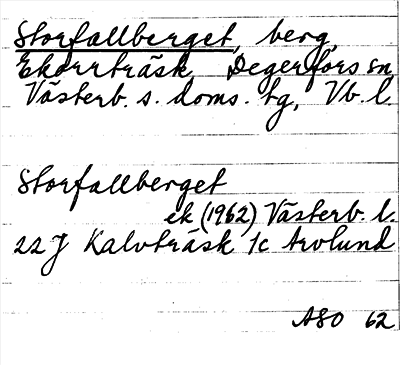 Storfallberget, berg,
Ekorrträsk, Degerfors sn
Västerb. s. doms. tg, Vb. l.
Storfallberget
ek (1962) Västerb. l.
22 J Kalvträsk 1c Arvlund
ASO 62